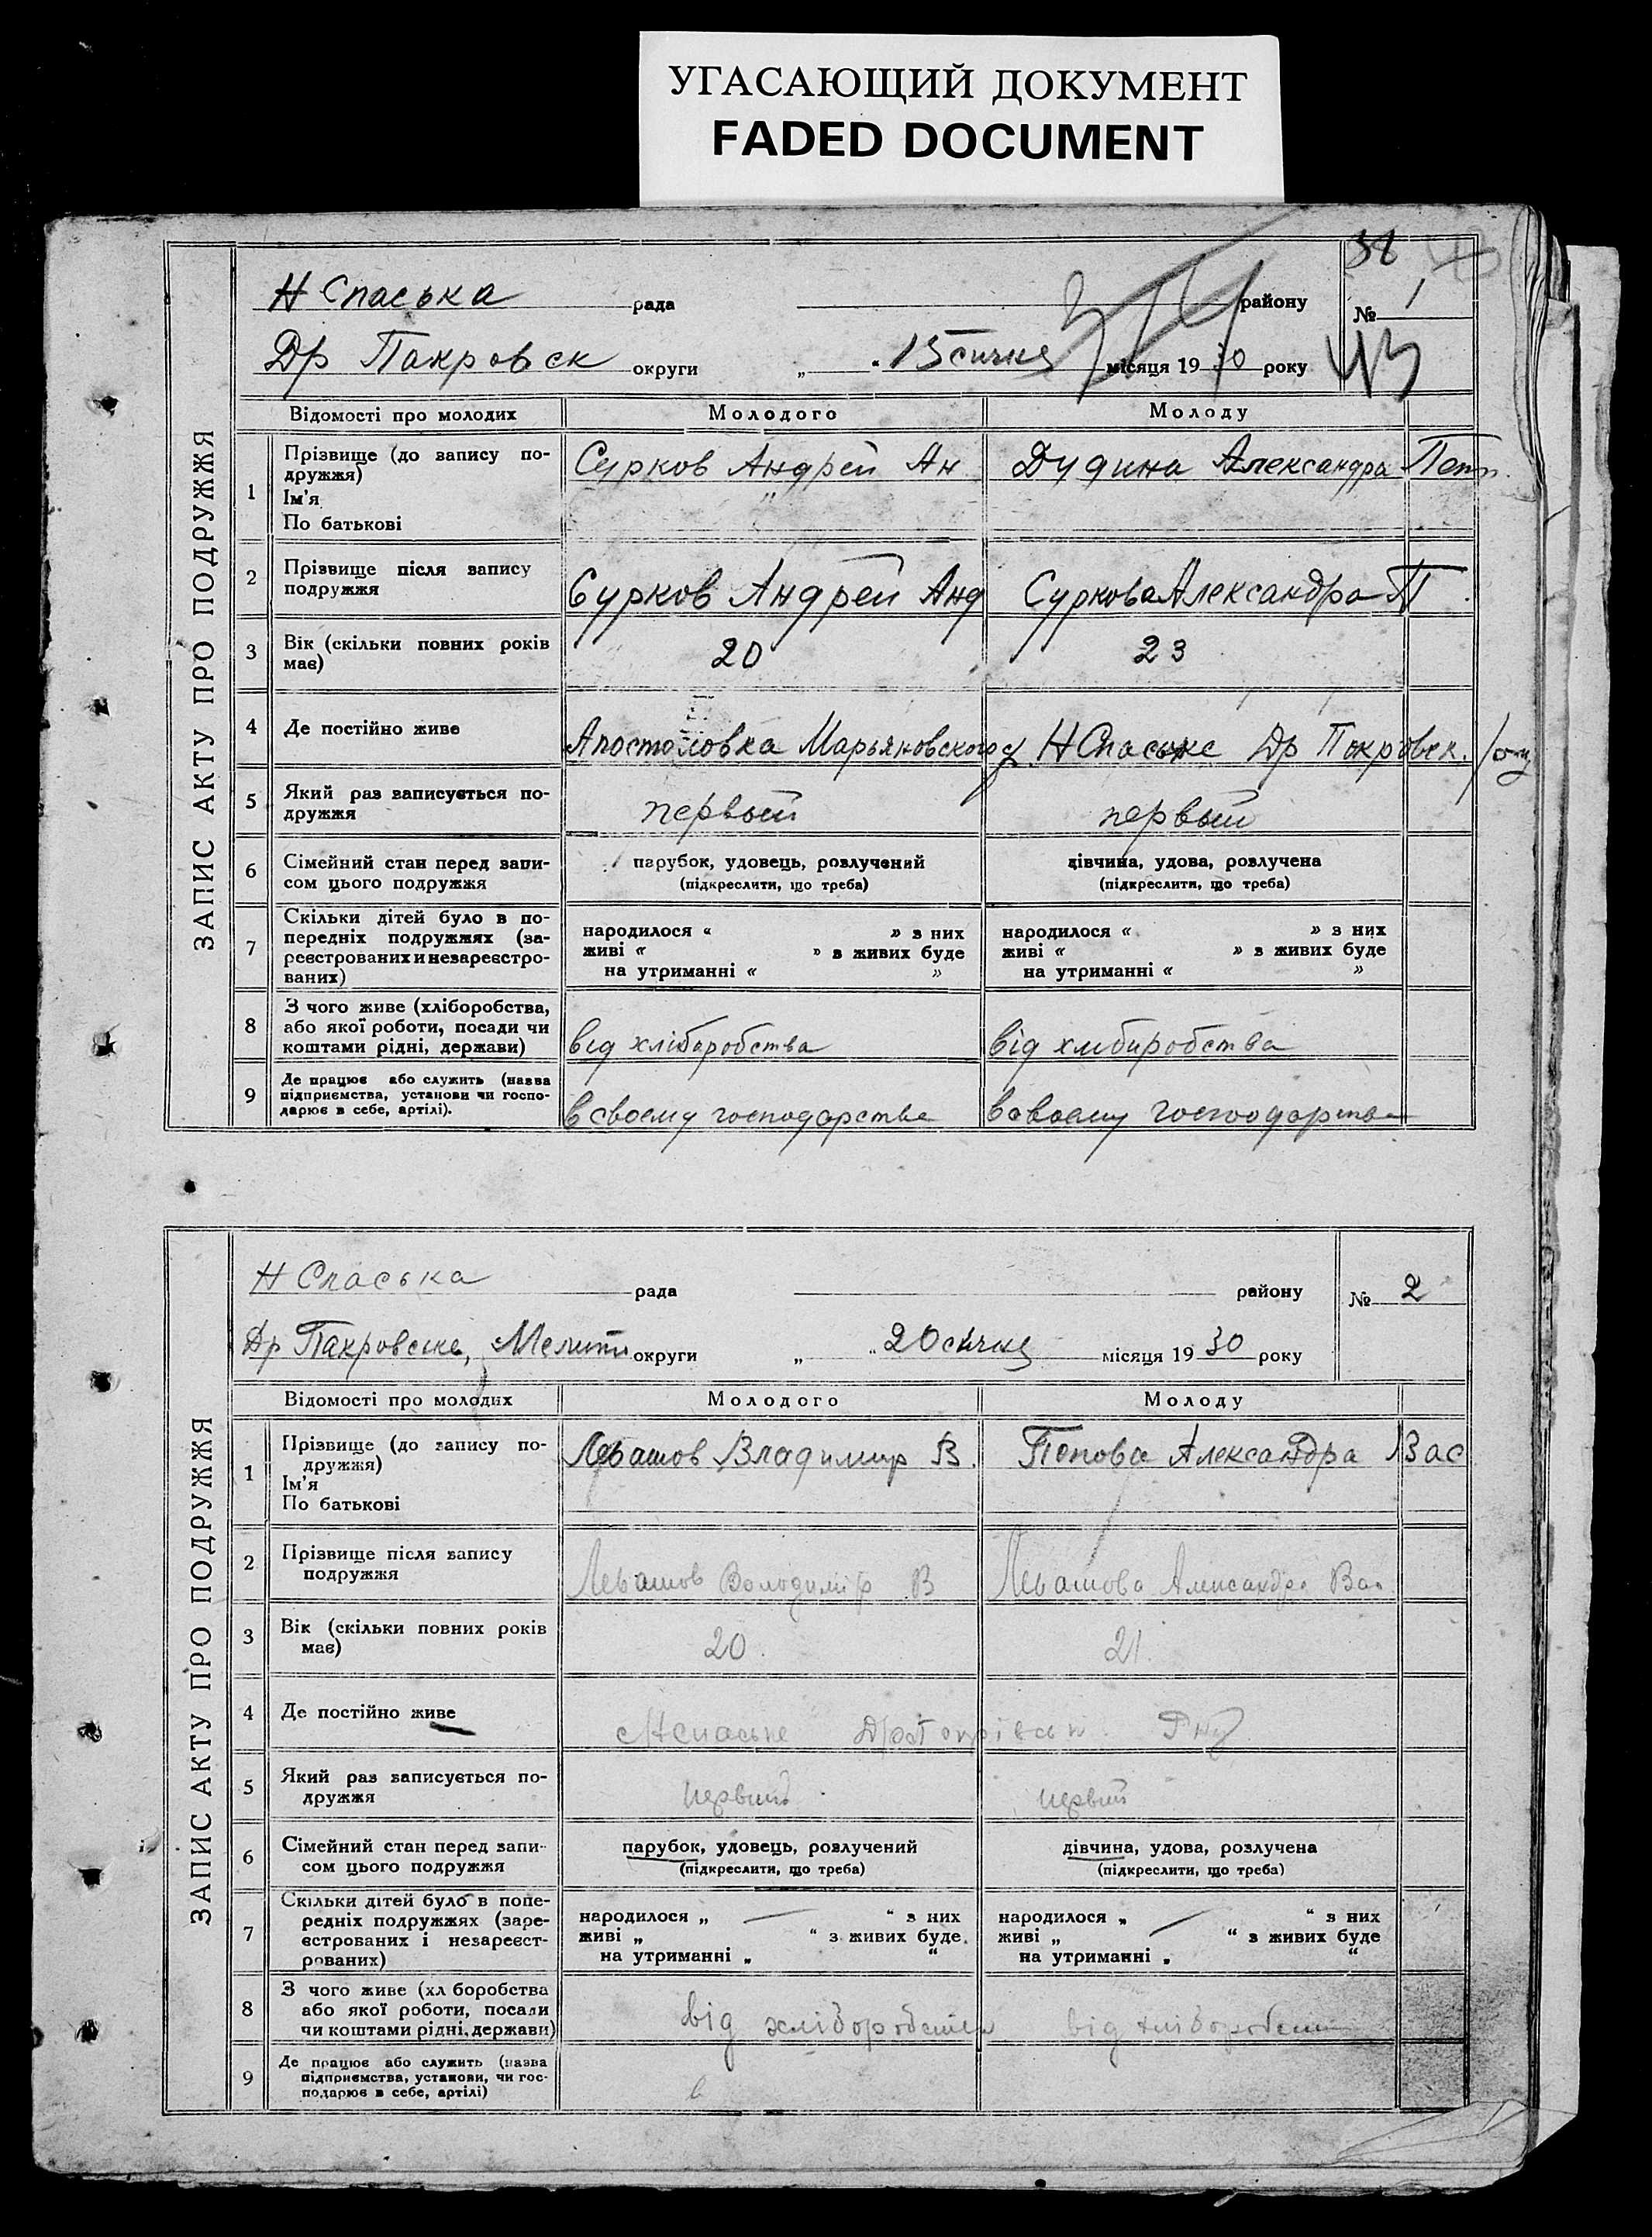 УГАСАЮЩИЙ ДОКУМЕНТ
FADED DOCUMENT
38
Н Спаська рада району № 1
Др Покровск округи „ “ 15 сичня місяця 1930 року
43
ЗАПИС АКТУ ПРО ПОДРУЖЖЯ
Відомості про молодих Молодого Молоду
1 Прізвище (до запису по-
дружжя)
Ім'я
По батькові
Сурков Андрей Ан Дудина Александра Петр.
2 Прізвище після запису
подружжя
Сурков Андрей Анд Суркова Александра П
3 Вік (скільки повних років
має)
20 23
4 Де постійно живе
Апостоловка Марьяновского Н Спаське Др Покровск.
5 Який раз записується по-
дружжя
первый первый
6 Сімейний стан перед запи-
сом цього подружжя
парубок, удовець, розлучений дівчина, удова, розлучена
(підкреслити, що треба) (підкреслити, що треба)
7 Скільки дітей було в по-
передніх подружжях (за-
реєстрованих и незареєстро-
ваних)
народилося “ ” з них народилося “ ” з них
живі “ ” з живих буде живі “ ” з живих буде
на утриманні “ ” на утриманні “ ”
8 З чого живе (хліборобства,
або якої роботи, посади чи
коштами рідні, держави)
від хліборобства від хлиборобства
9 Де працює або служить (назва
підприємства, установи чи госпо-
дарює в себе, артілі).
в своему господарстве в своему господарстве
Н Спаська рада району № 2
Др Покровске, Мелит округи „ “ 20 сичня місяця 1930 року
ЗАПИС АКТУ ПРО ПОДРУЖЖЯ
Відомості про молодих Молодого Молоду
1 Прізвище (до запису по-
дружжя)
Ім'я
По батькові
Левашов Владимир В. Попова Александра Вас
2 Прізвище після запису
подружжя
Левашов Володимір В Левашова Александра Вас
3 Вік (скільки повних років
має)
20. 21.
4 Де постійно живе
Нспаське
5 Який раз записується по-
дружжя
первий первий
6 Сімейний стан перед запи-
сом цього подружжя
парубок, удовець, розлучений дівчина, удова, розлучена
(підкреслити, що треба) (підкреслити, що треба)
7 Скільки дітей було в попе-
редніх подружжях (заре-
єстрованих і незареєст-
рованих)
народилося „ — “ з них народилося „ — “ з них
живі „ “ з живих буде живі „ “ з живих буде
на утриманні „ “ на утриманні „ “
8 З чого живе (хл боробства
або якої роботи, посади
чи коштами рідні, держави)
від хліборобства від хліборобства
9 Де працює або служить (назва
підприємства, установи, чи гос-
подарює в себе, артілі)
в